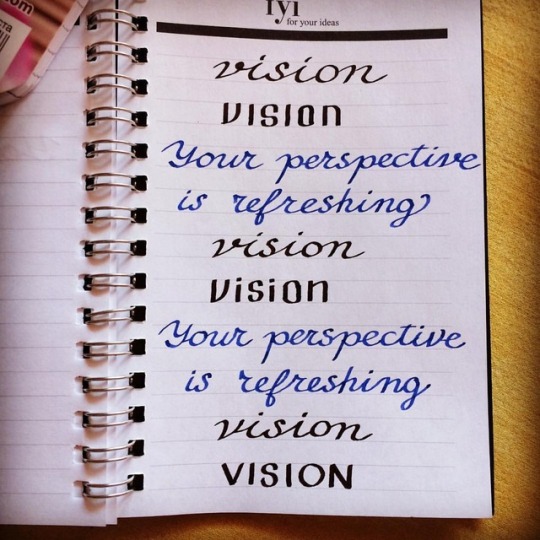 fyi
for your ideas
vision
VISIon
Your perspective
is refreshing
vision
Vision
Your perspective
is refreshing
vision
VISION